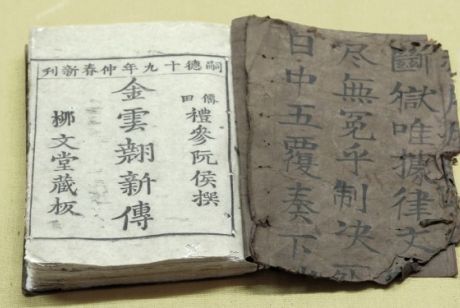 嗣德十九年仲春新刊
僊田禮參阮侯撰
金雲翹新傳
柳文堂藏板
斷獄唯據律文
尽無冤乎制决
日中五覆奏下